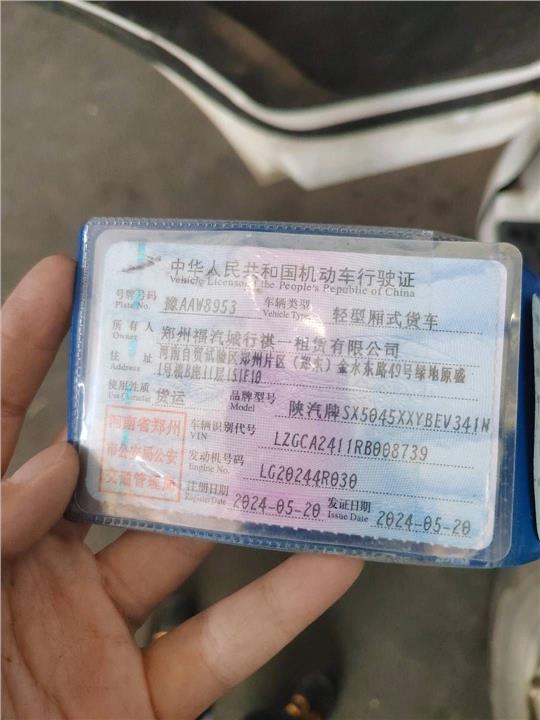 中华人民共和国机动车行驶证
Vehicle License of the People's Republic of China
号牌号码 豫AAW8953 车辆类型 轻型厢式货车
Plate No. Vehicle Type
所有人 郑州福汽城行祺一租赁有限公司
Owner
住址 河南自贸试验区郑州片区（郑东）金水东路49号绿地原盛
Address 1号楼B座11层151F10
使用性质 货运 品牌型号 陕汽牌SX5045XXYBEV341W
Use Character Model
河南省郑州 车辆识别代号 LZGCA2411RB008739
VIN
市公安局公安 发动机号码 LG20244R030
Engine No.
交通管理局 注册日期 2024-05-20 发证日期 2024-05-20
Register Date Issue Date